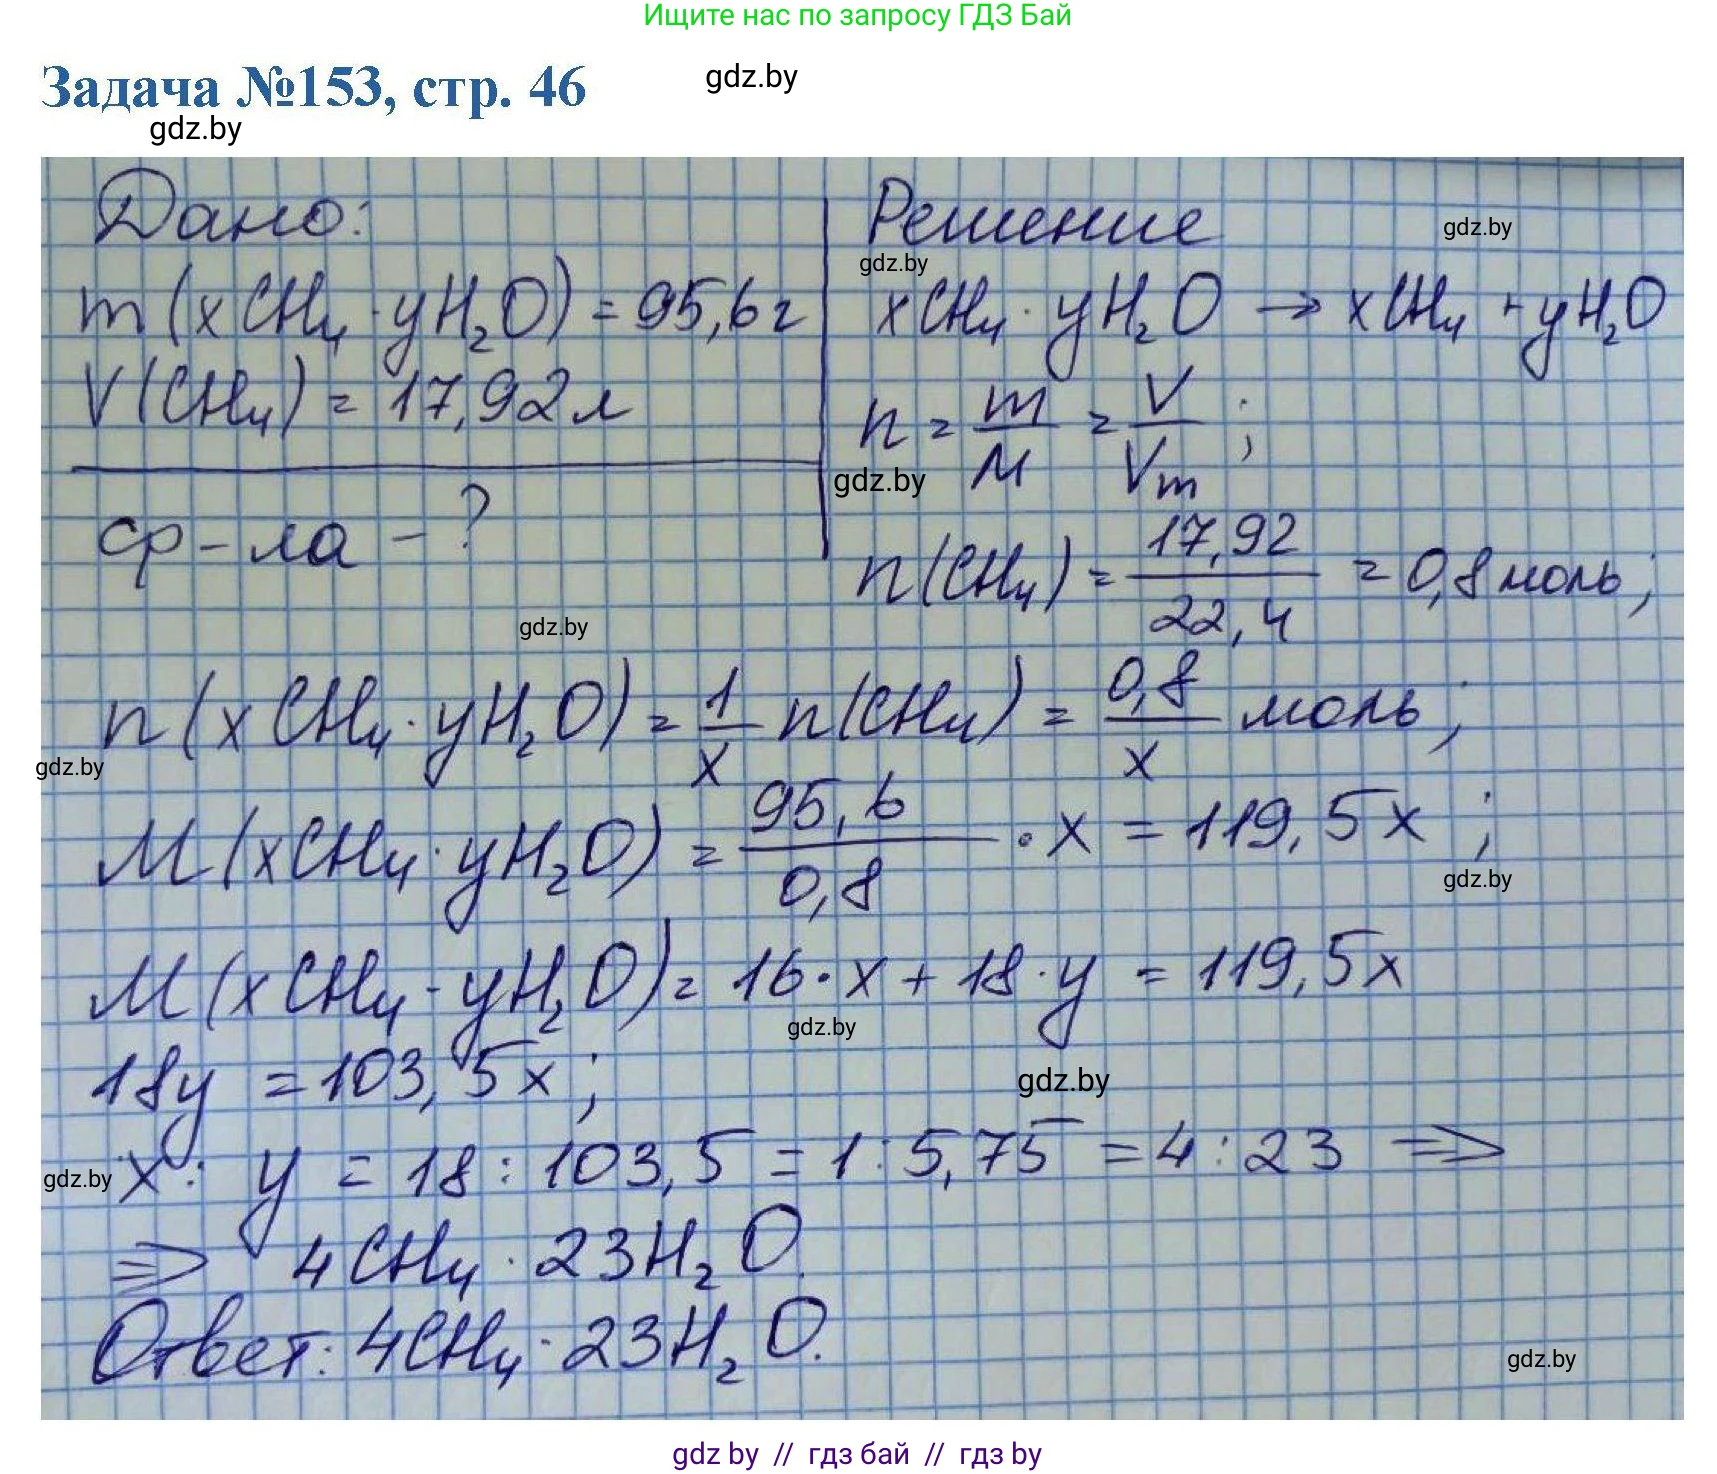 Ищите нас по запросу ГДЗ Бай
Задача №153, стр. 46
gdz.by
gdz.by
Дано:
m (xCH₄ · yH₂O) = 95,6 г
V(CH₄) = 17,92 л
ф-ла - ?
Решение
gdz.by
gdz.by
xCH₄ · yH₂O → xCH₄ + yH₂O
n = m/M = V/Vm ;
gdz.by
n(CH₄) = 17,92/22,4 = 0,8 моль;
gdz.by
n(xCH₄ · yH₂O) = 1/x n(CH₄) = 0,8/x моль;
gdz.by
M(xCH₄ · yH₂O) = 95,6/0,8 · x = 119,5x ;
gdz.by
M(xCH₄ · yH₂O) = 16 · x + 18 · y = 119,5x
gdz.by
18y = 103,5x ;
gdz.by
gdz.by
x : y = 18 : 103,5 = 1 : 5,75 = 4 : 23 ⇒
⇒ 4CH₄ · 23H₂O.
Ответ: 4CH₄ · 23H₂O.
gdz.by
gdz by // гдз бай // гдз by